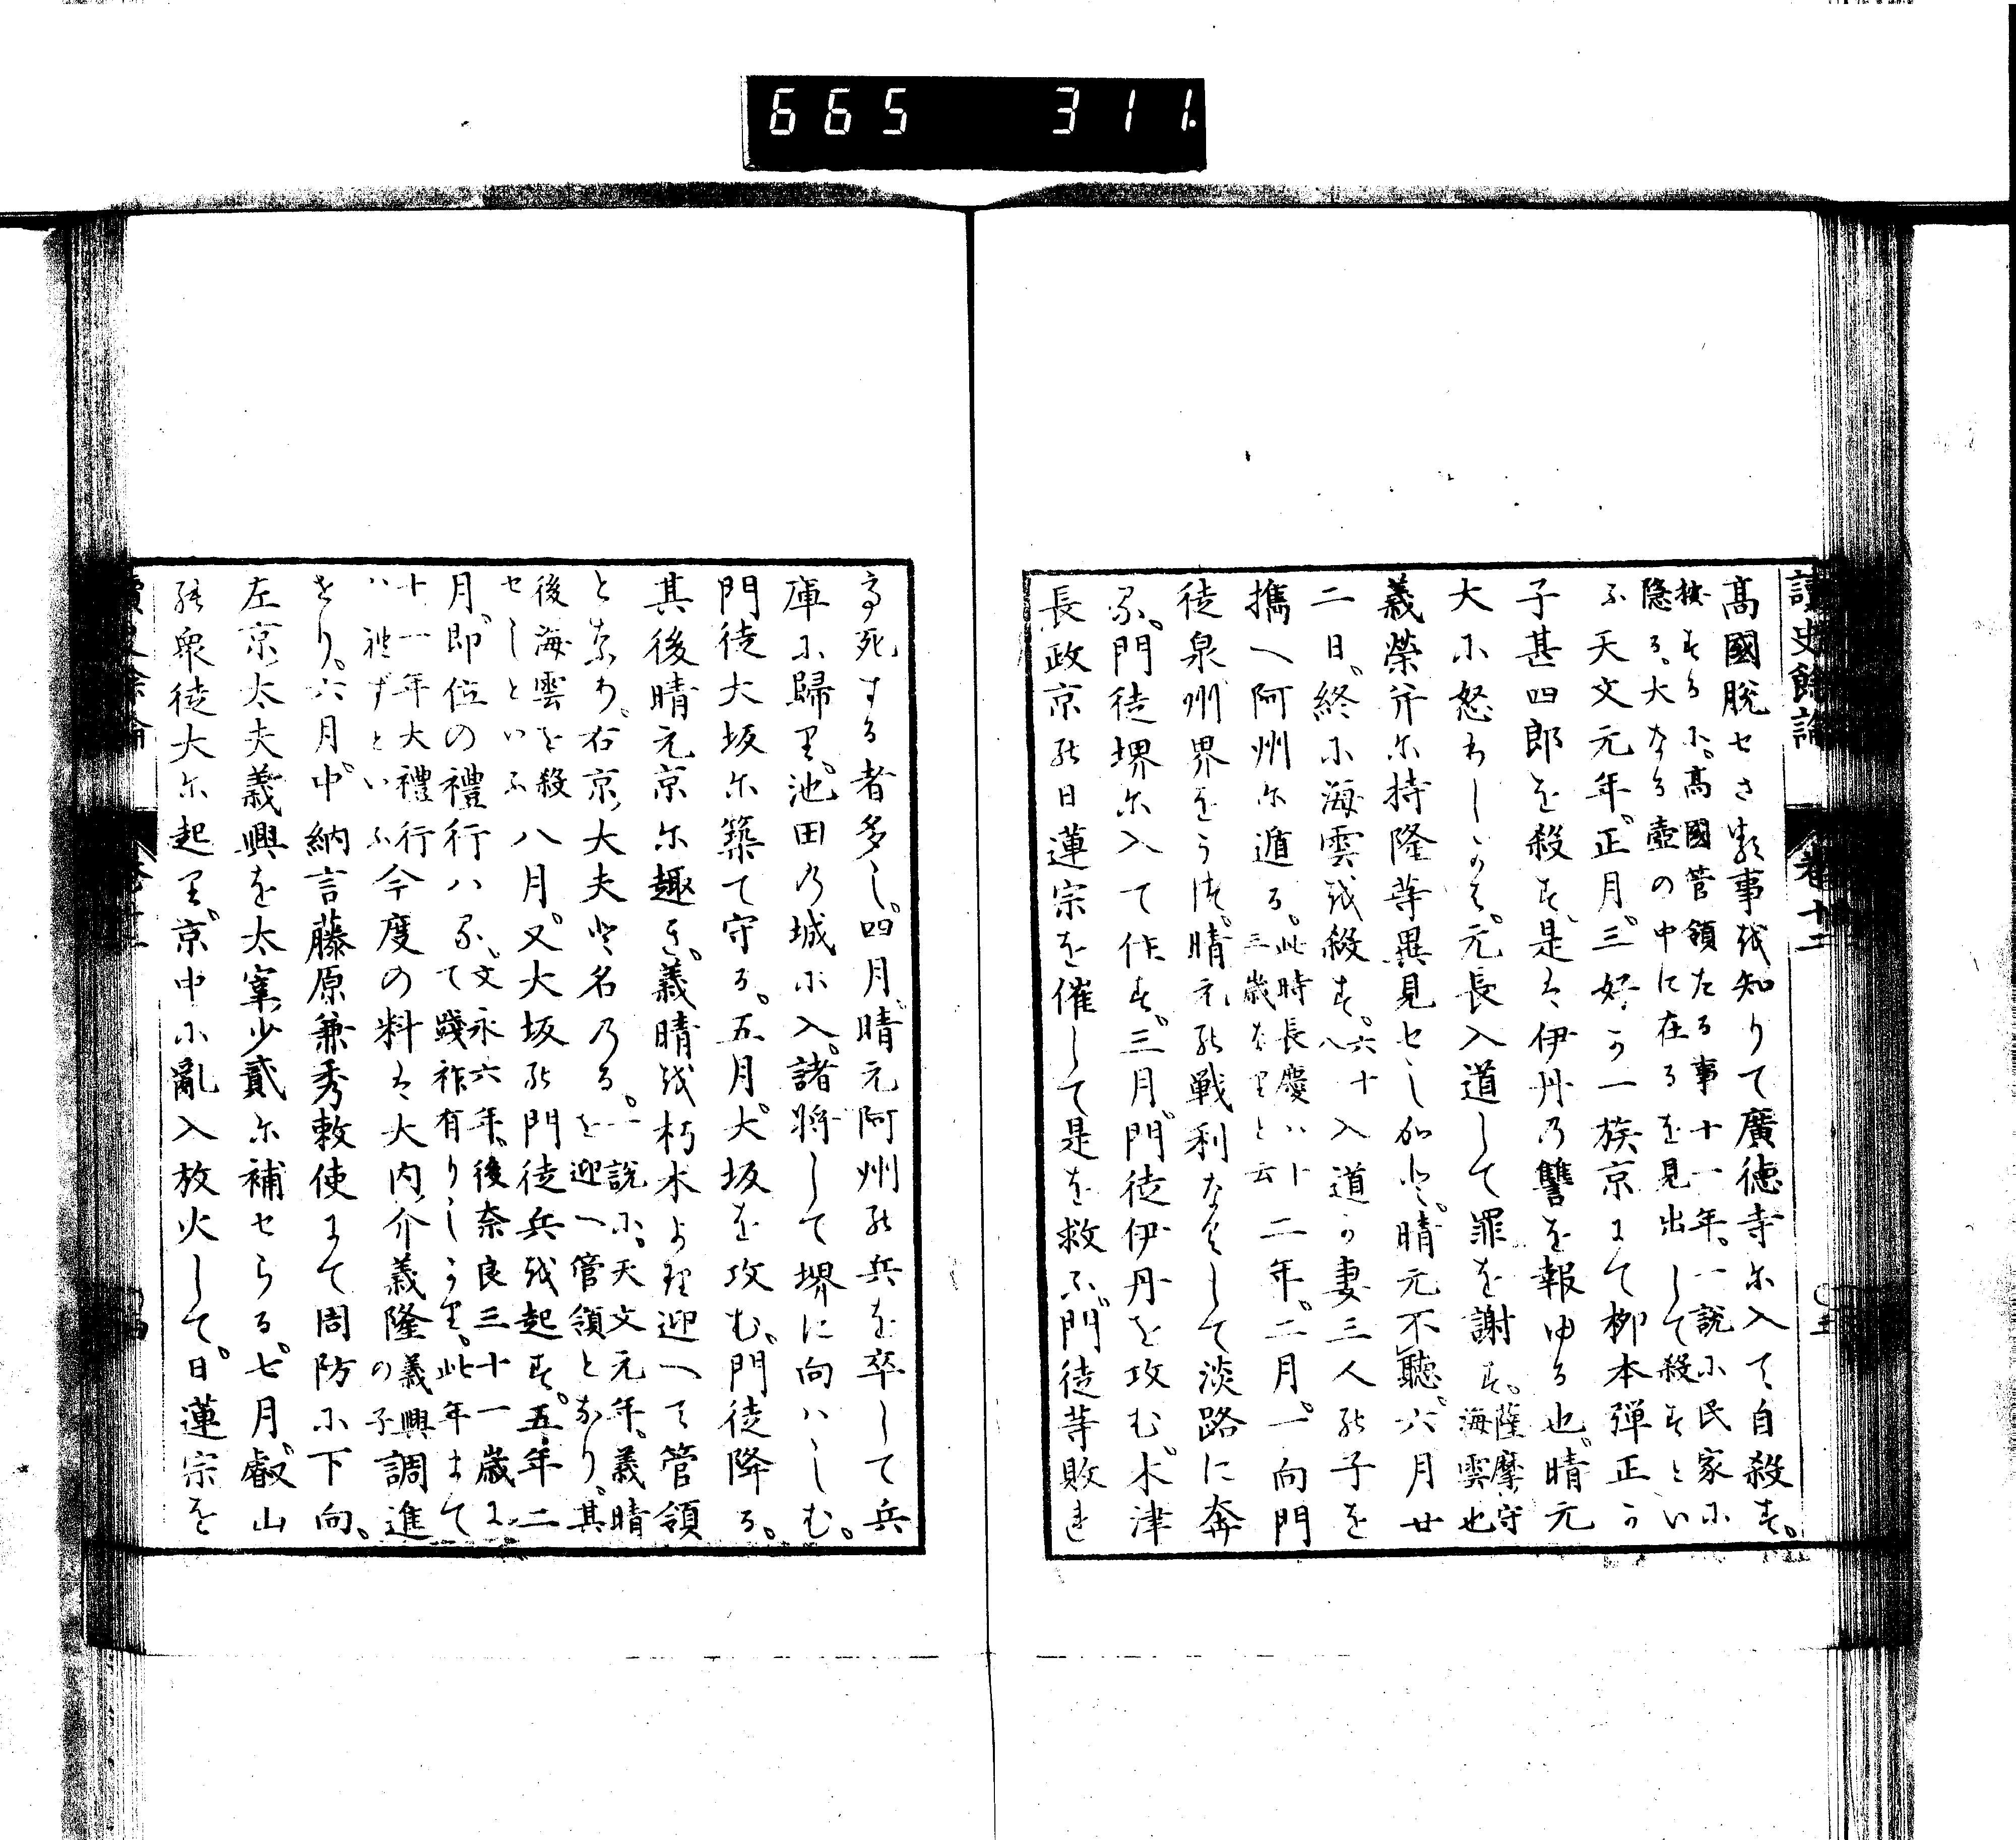 665 311.
讀史餘論 巻十二
高國脱せさる事を知りて廣徳寺に入て自殺す。
按するに。高國管領たる事十一年。一説に民家に
隠る。大なる壺の中に在るを見出して殺すとい
ふ天文元年。正月。三好か一族京にて柳本弾正か
子甚四郎を殺す。是は伊丹の讐を報ゆる也。晴元
大に怒りしかは。元長入道して罪を謝す。薩摩守
海雲也
義榮并に持隆等異見せしかと。晴元不聽。六月廿
二日。終に海雲を殺す。六十
八入道か妻三人の子を
携へ阿州に遁る。此時長慶ハ十
三歳なりと云二年。二月。一向門
徒泉州界をうつ。晴元の戦利なくして淡路に奔
る。門徒堺に入て作す。三月。門徒伊丹を攻む。木津
長政京の日蓮宗を催して是を救ふ。門徒等敗れ
て死する者多し。四月。晴元阿州の兵を卒して兵
庫に歸り。池田の城に入。諸将して堺に向ハしむ。
門徒大坂に築て守る。五月。大坂を攻む。門徒降る。
其後晴元京に趣き。義晴を朽木より迎へて管領
となり。右京大夫と名のる。一説に。天文元年。義晴
を迎へ管領となり、其
後海雲を殺
せしといふ八月。又大坂の門徒兵を起す。五年二
月。即位の禮行ハる。文永六年。後奈良三十一歳に
て踐祚有りしかり。此年まて
十一年大禮行
ハれずといふ今度の料は大内介義隆義興
の子調進
せり。六月。中納言藤原兼秀敕使にて周防に下向。
左京太夫義興を太宰少貳に補せらる。七月。叡山
の衆徒大に起り。京中に亂入放火して。日蓮宗を